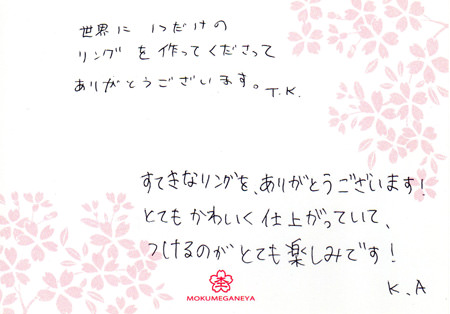 世界に 1つだけの
リングを作ってくださって
ありがとうございます。T.K.
すてきなリングを、ありがとうございます!
とてもかわいく仕上がっていて、
つけるのがとても楽しみです!
K.A
MOKUMEGANEYA